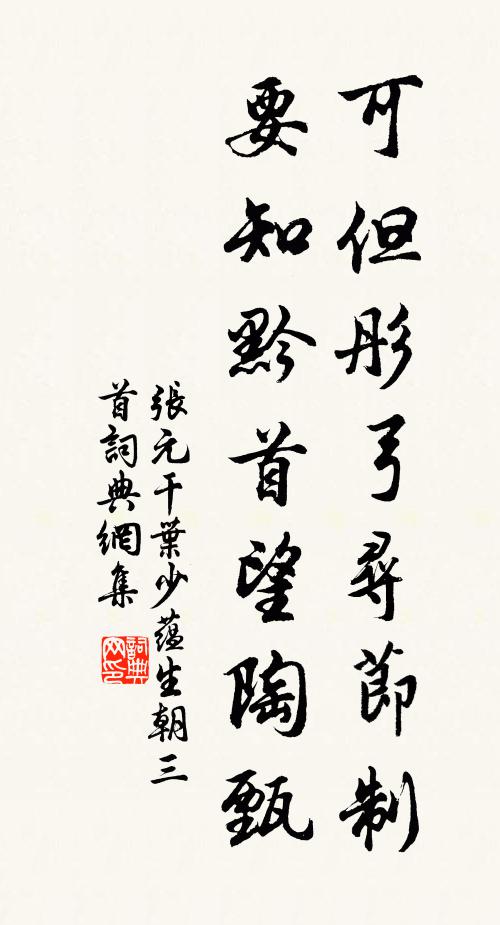 可但彤弓尋節制
要知黔首望陶甄
張元干葉少蘊生朝三
首詞典網集
詞典
网印